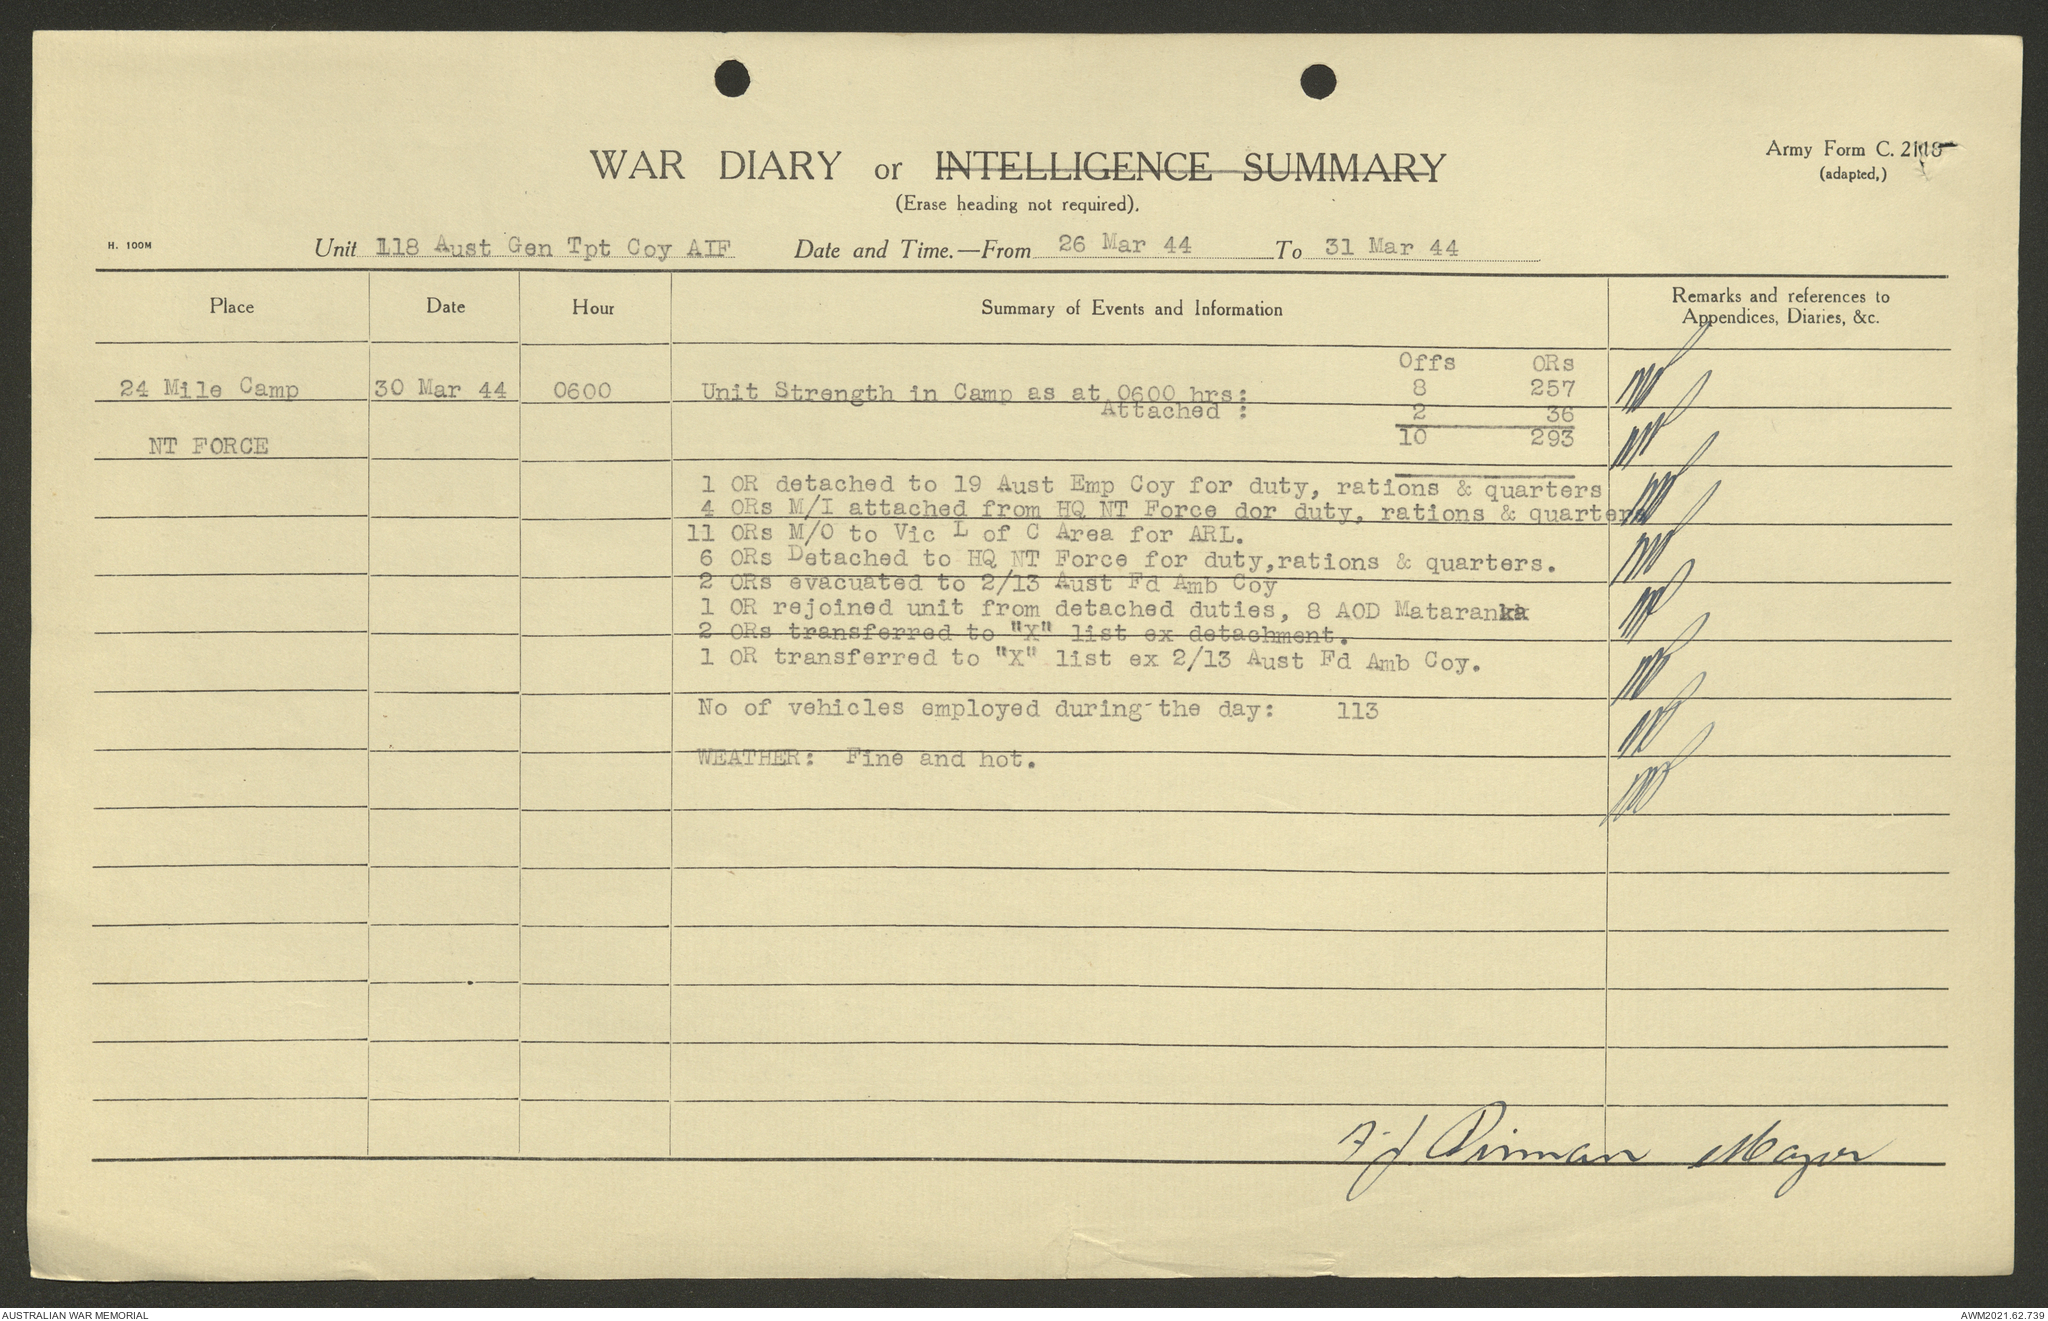 WAR DIARY or INTELLIGENCE SUMMARY
(Erase heading not required).
Army Form C. 2118
(adapted,)
H. 100M
Unit 118 Aust Gen Tpt Coy AIF Date and Time.—From 26 Mar 44 To 31 Mar 44
Place Date Hour Summary of Events and Information Remarks and references to
Appendices, Diaries, &c.
Offs ORs
24 Mile Camp 30 Mar 44 0600 Unit Strength in Camp as at 0600 hrs: 8 257
Attached : 2 36
NT FORCE 10 293
1 OR detached to 19 Aust Emp Coy for duty, rations & quarters
4 ORs M/I attached from HQ NT Force dor duty, rations & quarters
11 ORs M/O to Vic L of C Area for ARL.
6 ORs Detached to HQ NT Force for duty,rations & quarters.
2 ORs evacuated to 2/13 Aust Fd Amb Coy
1 OR rejoined unit from detached duties, 8 AOD Mataranka
2 ORs transferred to "X" list ex detachment.
1 OR transferred to "X" list ex 2/13 Aust Fd Amb Coy.
No of vehicles employed during the day: 113
WEATHER: Fine and hot.
Major
AUSTRALIAN WAR MEMORIAL
AWM2021.62.739